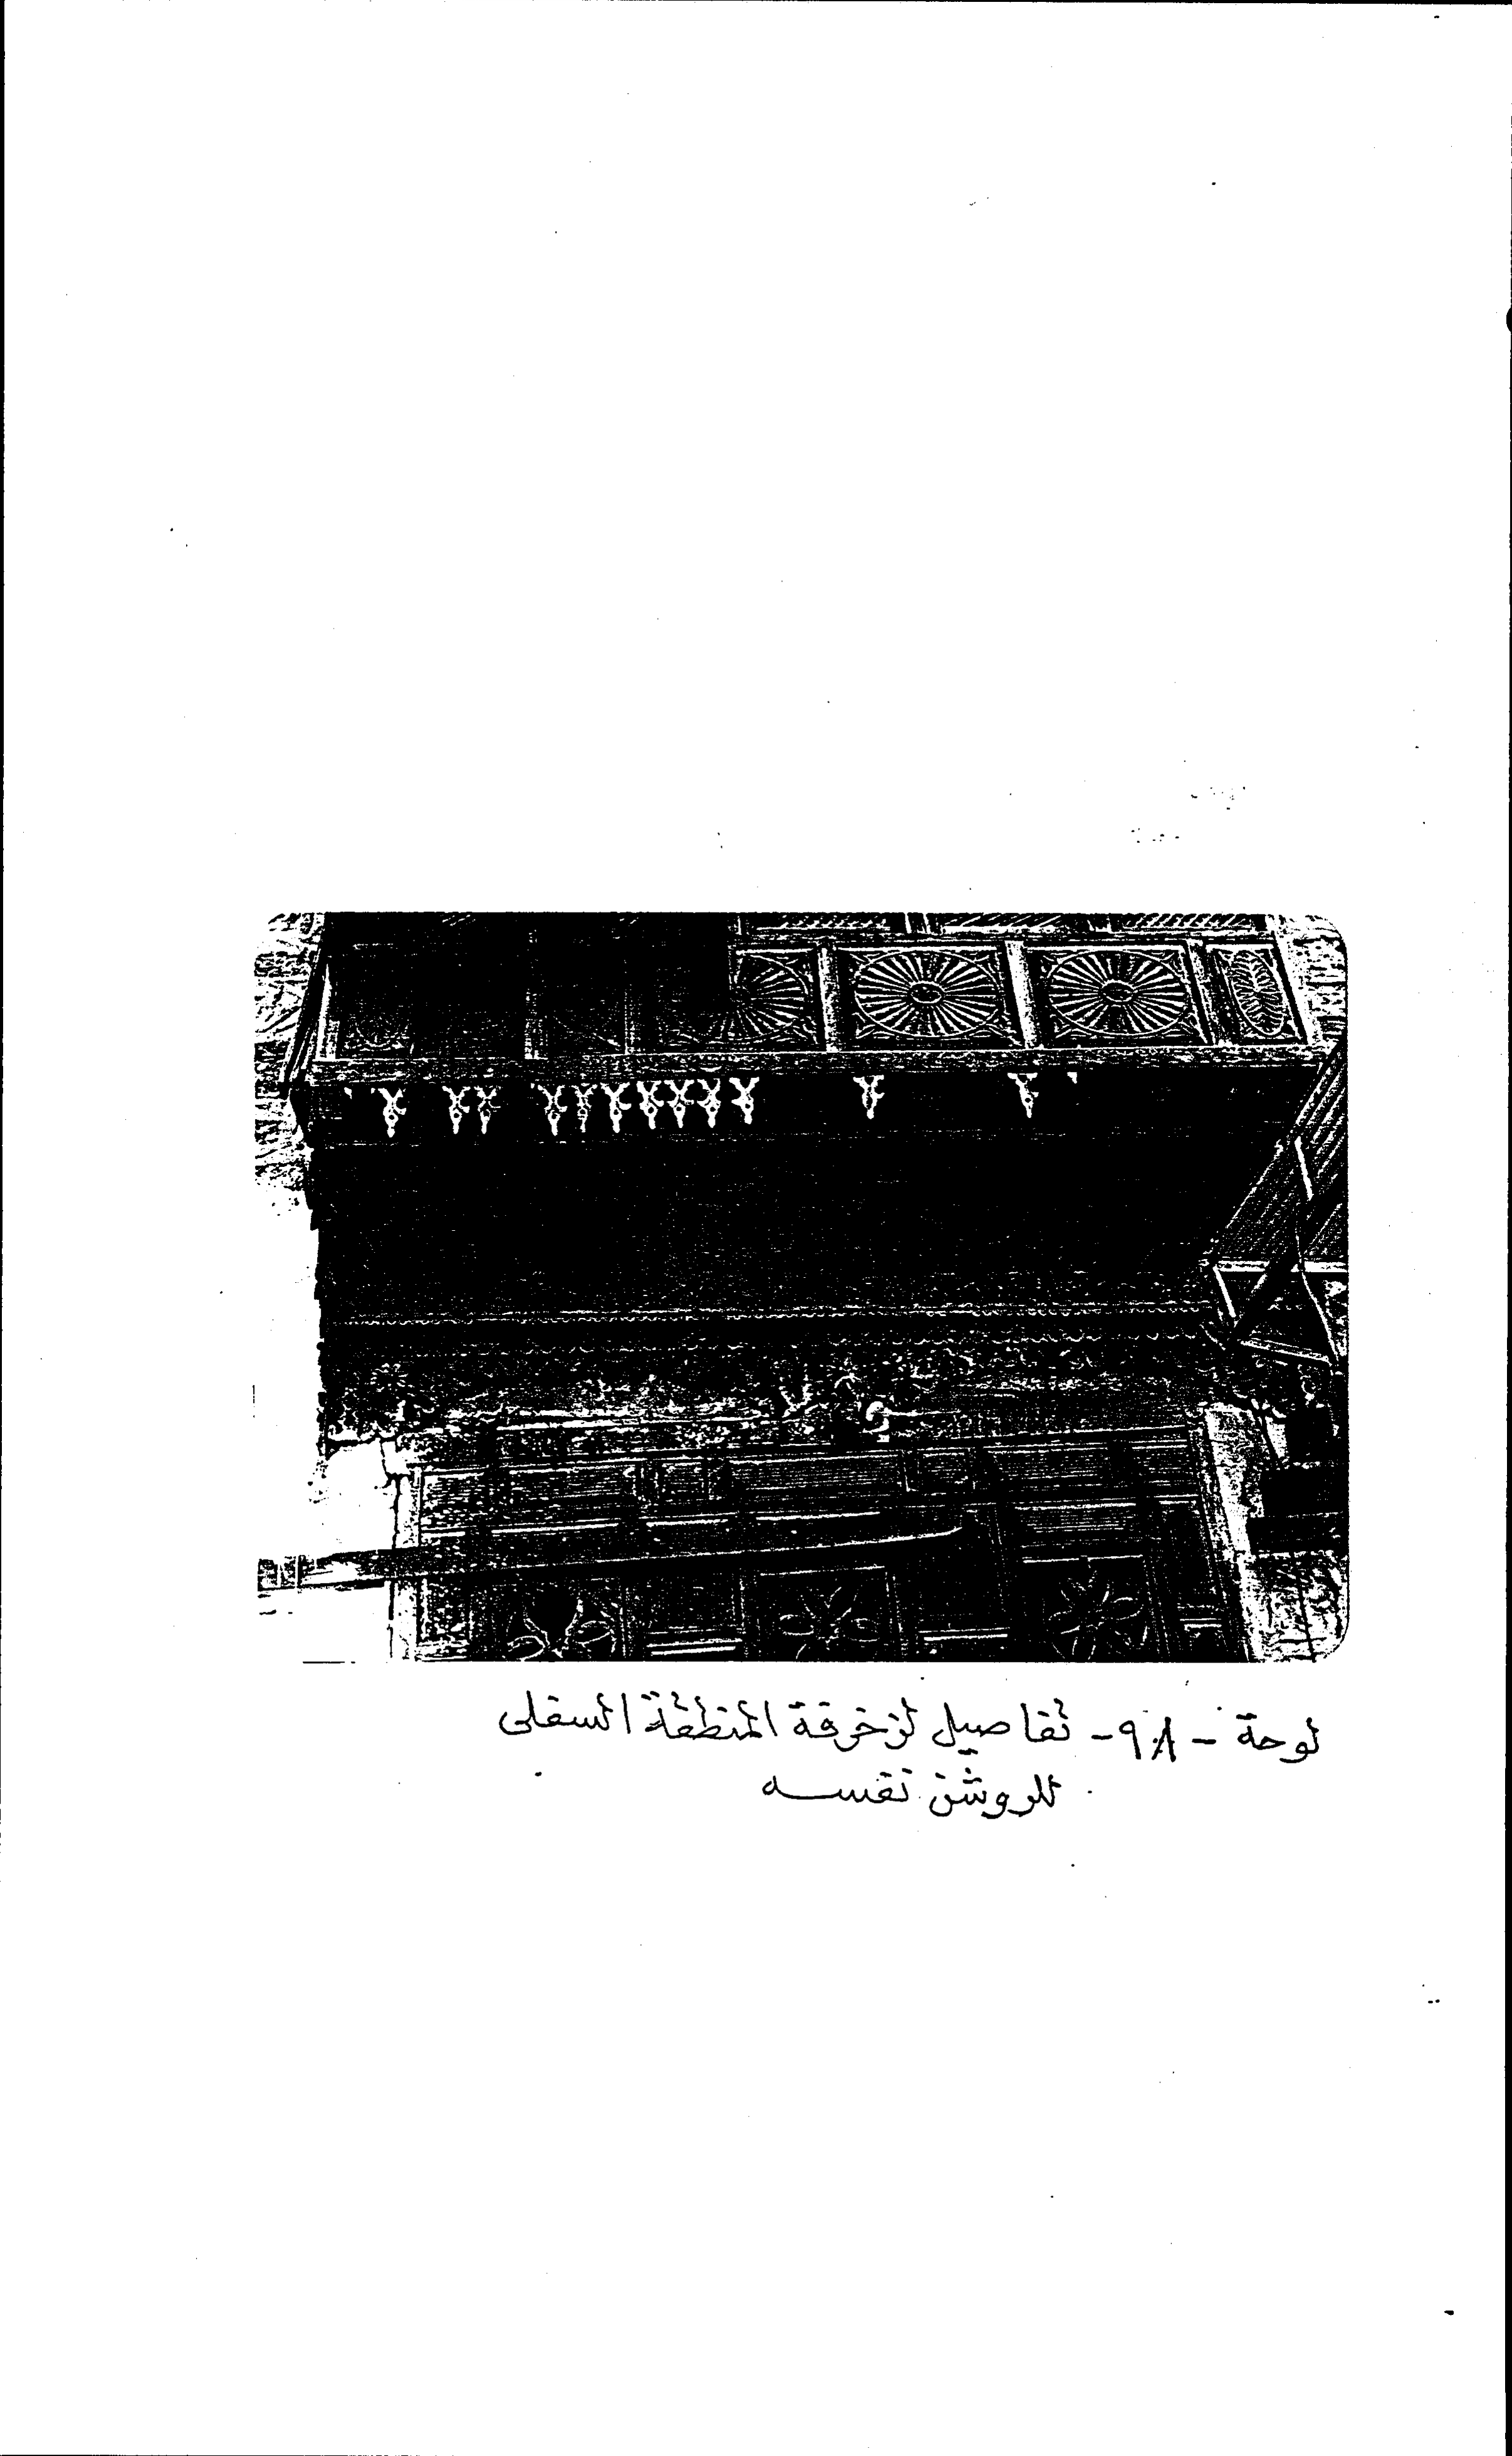 لوحة - ٩٠٨ - تفاصيل لزخرفة المنطقة السفلى
للروشن نفسه